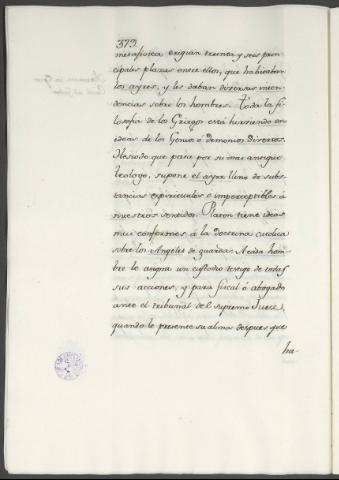 373.
metafisica erigian treinta y seis prin-
cipales plazas entre ellos, que habitaban
los ayres, y les daban diversas inten-
dencias sobre los hombres. Toda la fi-
losofia de los Griegos está hirviendo en
ideas de los Genios o demonios diversos.
Hesiodo que pasa por su mas antiguo
teologo, supone el ayre lleno de subs-
tancias espirituales e imperceptibles á
nuestros sentidos. Platon tiene ideas
mui conformes á la doctrina catolica
sobre los Angeles de guarda. A cada hom-
bre le asigna un custodio testigo de todas
sus acciones, y para fiscal ó abogado
ante el tribunal del supremo Juez,
quando le presente su alma despues que
ha-